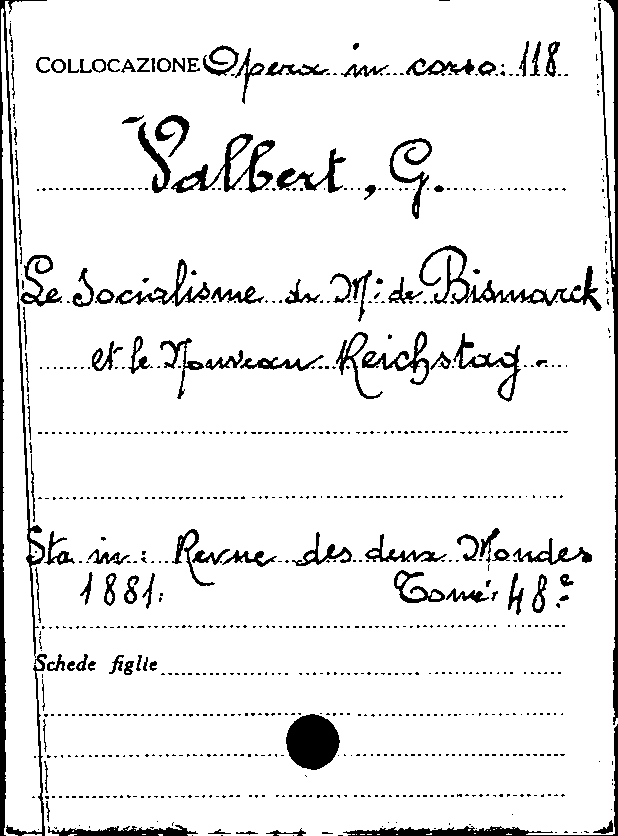 COLLOCAZIONE Opera in corso: 118
Valbert, G.
Le Socialisme de Mr: de Bismarck
et le Nouveau Reichstag -
Sta in: Revue des deux Mondes
1881. Tome: 48e
Schede figlie